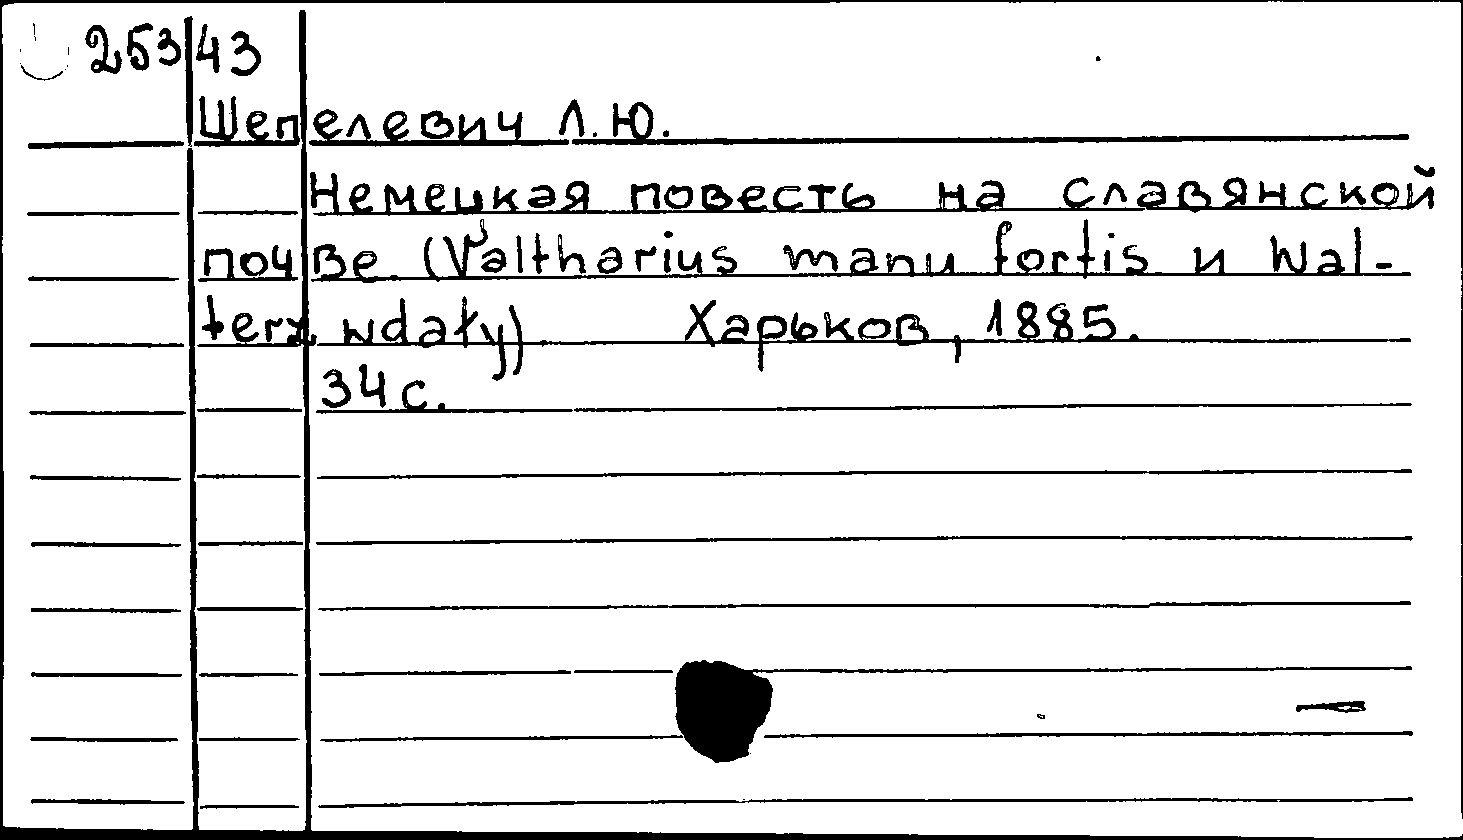 253 43
Шепелевич Л.Ю.
Немецкая повесть на славянской
почве. (Valtharius manu fortis и Wal-
terz wdały). Харьков, 1885.
34 с.